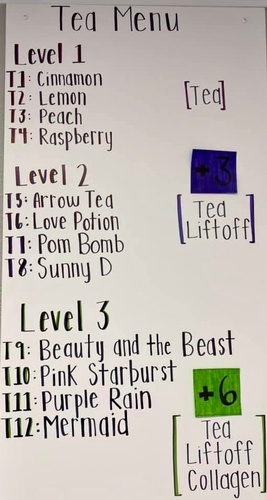 Tea Menu
Level 1
T1: Cinnamon
T2: Lemon
T3: Peach
T4: Raspberry
[Tea]
Level 2
+3
T5: Arrow Tea
T6: Love Potion
T7: Pom Bomb
T8: Sunny D
[Tea
Liftoff]
Level 3
T9: Beauty and the Beast
T10: Pink Starburst
T11: Purple Rain
T12: Mermaid
+6
[Tea
Liftoff
Collagen]